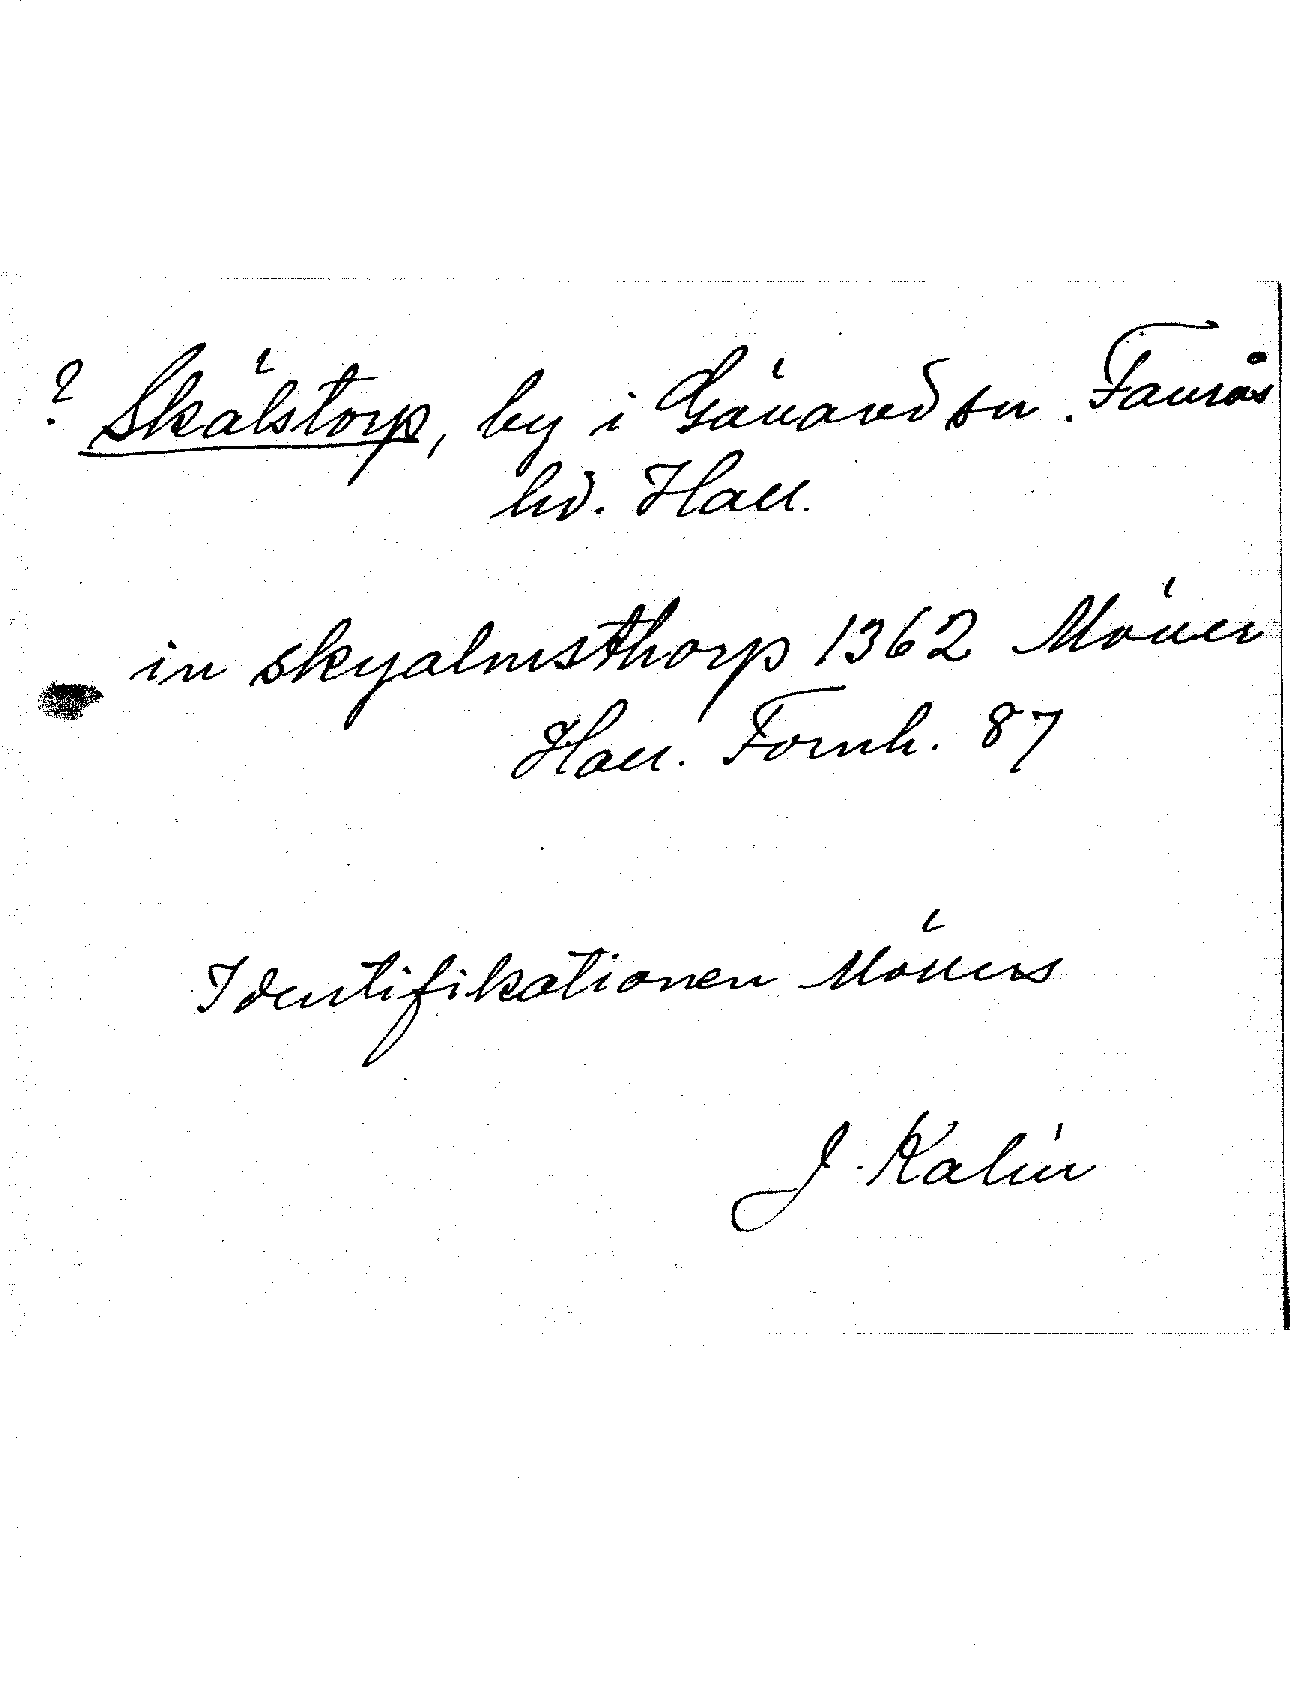 ? Skälstorp, by i Gällared sn. Faurås
hd. Hall.
in skyalmsthorp 1362 Möller
Hall. Fornh. 87
Identifikationen Möllers
J. Kalén